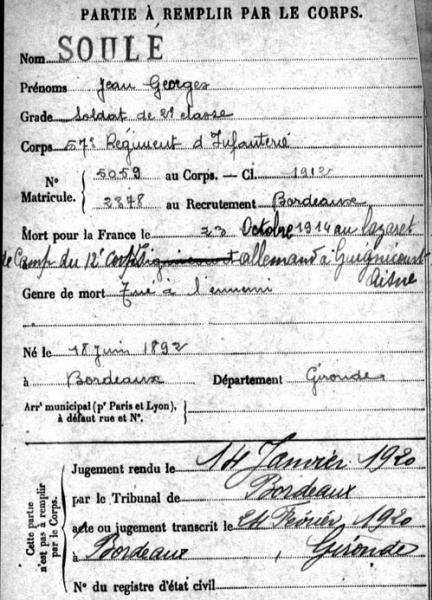 PARTIE À REMPLIR PAR LE CORPS.
Nom SOULE
Prénoms Jean Georges
Grade Soldat de 2e classe
Corps 57e Régiment d'Infanterie
Nº 5059 au Corps. — Cl. 1912
Matricule. 2278 au Recrutement Bordeaux
Mort pour la France le 23 Octobre 1914 au lazaret
de Camp du 12e Corps allemand à Guignicourt
Aisne
Genre de mort Tué à l'ennemi
Né le 18 Juin 1892
à Bordeaux Département Gironde
Arrt municipal (pr Paris et Lyon),
à défaut rue et Nº.
Cette partie
n'est pas à remplir
par le Corps.
Jugement rendu le 14 Janvier 1920
par le Tribunal de Bordeaux
acte ou jugement transcrit le 24 Février 1920
à Bordeaux, Gironde
Nº du registre d'état civil